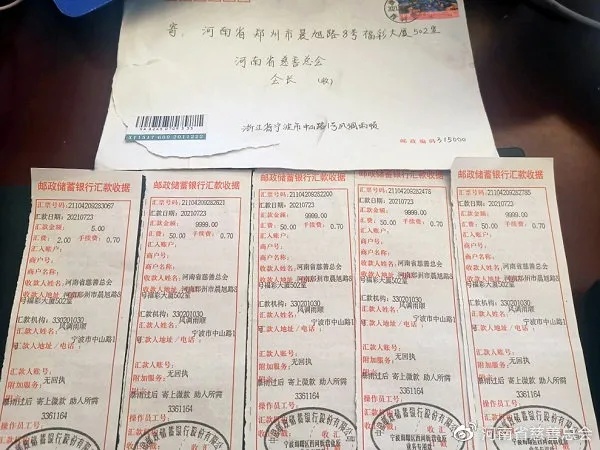 寄: 河南省郑州市晨旭路8号福彩大厦502室
河南省慈善总会
会长 (收)
浙江省宁波市中山路1号风调雨顺
邮政编码 315000
邮政储蓄银行汇款收据
汇票号码:21104209283067
汇款日期:20210723
汇款金额: 5.00
汇费: 2.00 手续费: 0.70
汇入账户:
商户名称:
收款人姓名:河南省慈善总会
收款人地址:河南郑州市晨旭路8
号福彩大厦502室
汇款机构: 330201030
汇款人姓名: 风调雨顺
汇款人地址/电话: 宁波市中山路1
号
汇款人账号:
附加服务: 无回执
附言: 暴雨过后 寄上微款 助人所需
操作员号: 3361164
邮政储蓄银行汇款收据
汇票号码:21104209282621
汇款日期:20210723
汇款金额: 9999.00
汇费: 50.00 手续费: 0.70
汇入账户:
商户名称:
收款人姓名:河南省慈善总会
收款人地址:河南郑州市晨旭路8
号福彩大厦502室
汇款机构: 330201030
汇款人姓名: 风调雨顺
汇款人地址/电话: 宁波市中山路1
号
汇款人账号:
附加服务: 无回执
暴雨过后 寄上微款 助人所需
操作员号: 3361164
邮政储蓄银行汇款收据
汇票号码:21104209282200
汇款日期:20210723
汇款金额: 9999.00
汇费: 50.00 手续费: 0.70
汇入账户:
商户名称:
收款人姓名:河南省慈善总会
收款人地址:河南郑州市晨旭路8
号福彩大厦502室
汇款机构: 330201030
汇款人姓名: 风调雨顺
汇款人地址/电话: 宁波市中山路1
号
汇款人账号:
附加服务: 无回执
暴雨过后 寄上微款 助人所需
操作员号: 3361164
邮政储蓄银行汇款收据
汇票号码:21104209282478
汇款日期:20210723
汇款金额: 9999.00
汇费: 50.00 手续费: 0.70
汇入账户:
商户名称:
收款人姓名:河南省慈善总会
收款人地址:河南郑州市晨旭路8
号福彩大厦502室
汇款机构: 330201030
汇款人姓名: 风调雨顺
汇款人地址/电话: 宁波市中山路1
号
汇款人账号:
附加服务: 无回执
暴雨过后 寄上微款 助人所需
操作员号: 3361164
邮政储蓄银行汇款收据
汇票号码:21104209282785
汇款日期:20210723
汇款金额: 9999.00
汇费: 50.00 手续费: 0.70
汇入账户:
商户名称:
收款人姓名:河南省慈善总会
收款人地址:河南郑州市晨旭路8
号福彩大厦502室
汇款机构: 330201030
汇款人姓名: 风调雨顺
汇款人地址/电话: 宁波市中山路1
号
汇款人账号:
附加服务: 无回执
暴雨过后 寄上微款 助人所需
操作员号: 3361164
@河南省慈善总会